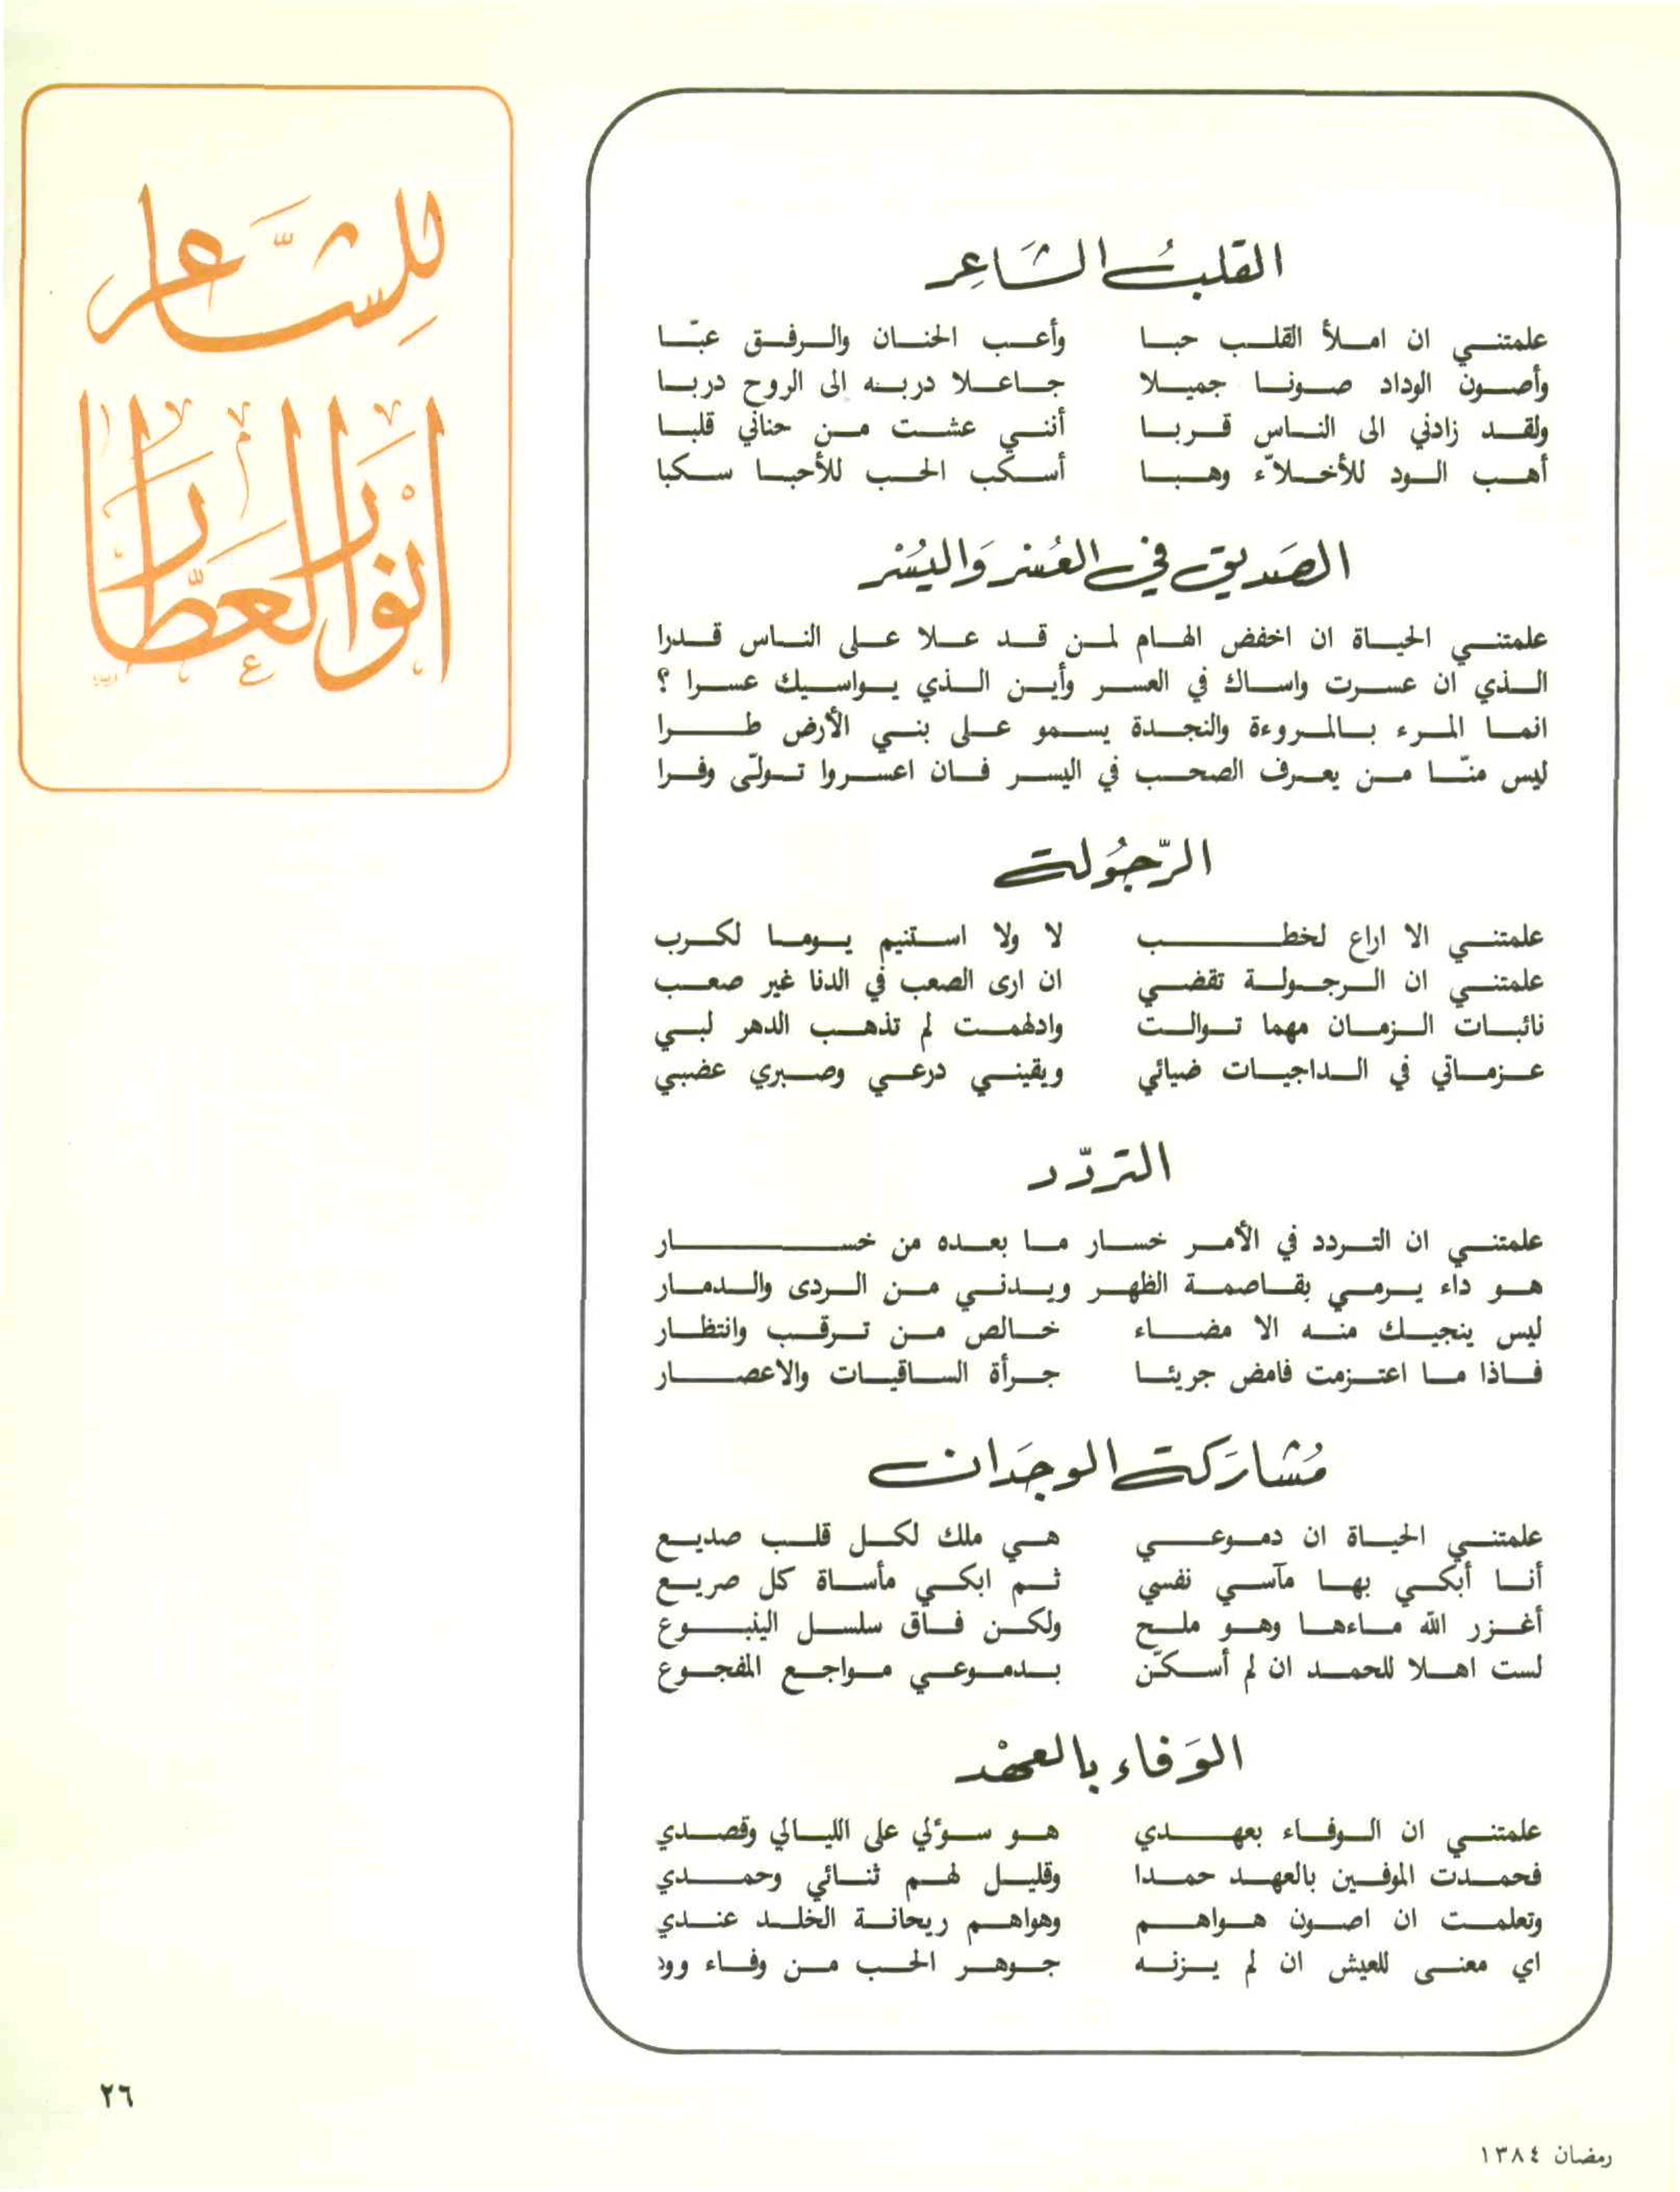 للشَّاعر
أنور العطَّار
القلبُ الشَاعِر
علمتني ان املأ القلب حبا وأعب الحنان والرفق عبّا
وأصون الوداد صونا جميلا جاعلا دربه الى الروح دربا
ولقد زادني الى الناس قربا أنني عشت من حناني قلبا
أهب الود للأخلاّء وهبا أسكب الحب للأحبا سكبا
الصَديق في العُسْر وَاليُسْر
علمتني الحياة ان اخفض الهام لمن قد علا على الناس قدرا
الذي ان عسرت واساك في العسر وأين الذي يواسيك عسرا ؟
انما المرء بالمروءة والنجدة يسمو على بني الأرض طرا
ليس منّا من يعرف الصحب في اليسر فان اعسروا تولّى وفرا
الرّجُولة
علمتني الا اراع لخطب لا ولا استنيم يوما لكرب
علمتني ان الرجولة تقضي ان ارى الصعب في الدنا غير صعب
نائبات الزمان مهما توالت وادلهمت لم تذهب الدهر لبي
عزماتي في الداجيات ضيائي ويقيني درعي وصبري عضبي
التردّد
علمتني ان التردد في الأمر خسار ما بعده من خسار
هو داء يرمي بقاصمة الظهر ويدني من الردى والدمار
ليس ينجيك منه الا مضاء خالص من ترقب وانتظار
فاذا ما اعتزمت فامض جريئا جرأة الساقيات والاعصار
مُشارَكة الوجَدان
علمتني الحياة ان دموعي هي ملك لكل قلب صديع
أنا أبكي بها مآسي نفسي ثم ابكي مأساة كل صريع
أغزر الله ماءها وهو ملح ولكن فاق سلسل الينبوع
لست اهلا للحمد ان لم أسكّن بدموعي مواجع المفجوع
الوَفاء بالعهْد
علمتني ان الوفاء بعهدي هو سؤلي على الليالي وقصدي
فحمدت الموفين بالعهد حمدا وقليل لهم ثنائي وحمدي
وتعلمت ان اصون هواهم وهواهم ريحانة الخلد عندي
اي معنى للعيش ان لم يزنه جوهر الحب من وفاء وود
٢٦
رمضان ١٣٨٤